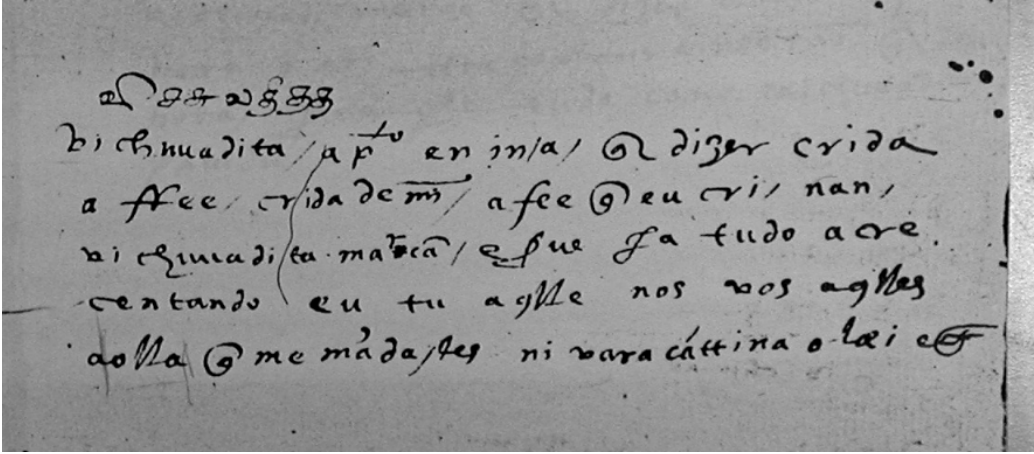 விசசுவதிதத
vichuuadita, a pto en in/a, qr dizer crida
a ffee, crida de mi, a fee q eu cri, nan,
vichuuadita ja tudo acre.
centando eu tu aqlle nos vos aqlles
aolla q me mādastes ni varacáttina olæi etc